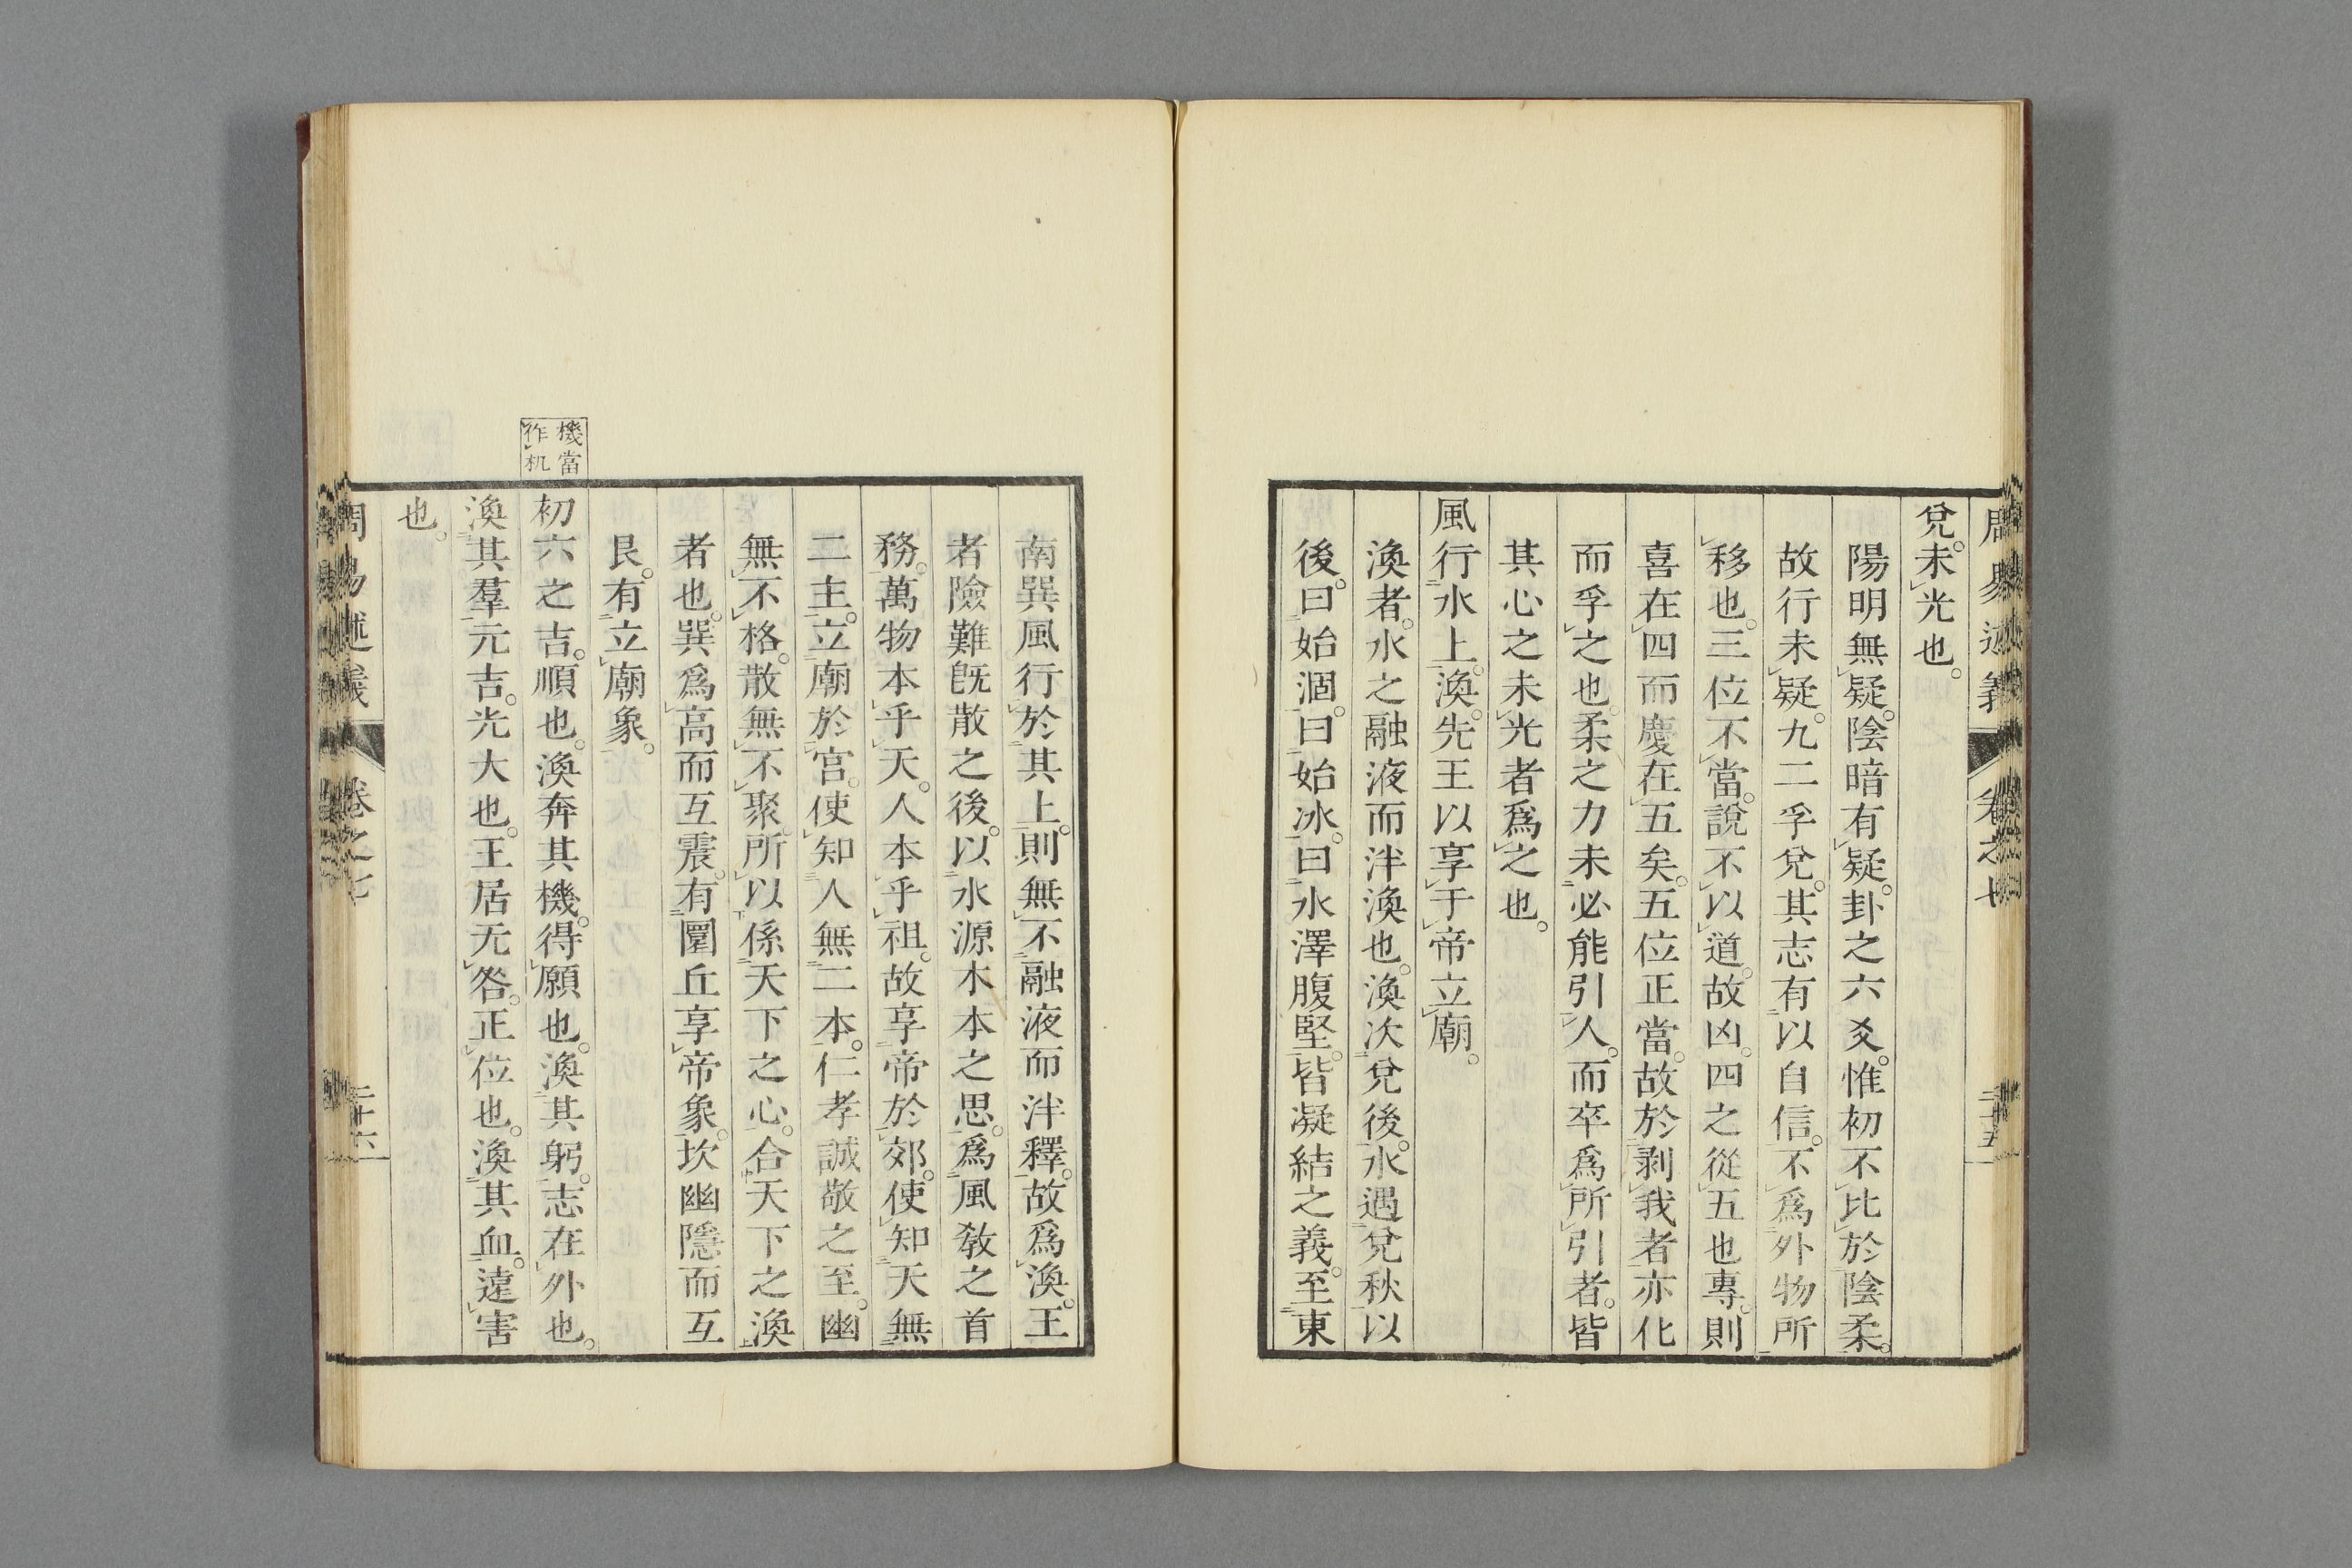 周易述義　卷之七　二十五
兌。未光也。
陽明無疑。陰暗有疑。卦之六爻。惟初不比於陰柔。
故行未疑。九二孚兌。其志有以自信。不爲外物所
移也。三位不當。說不以道。故凶。四之從五也專。則
喜在四而慶在五矣。五位正當。故於剥我者亦化
而孚之也。柔之力未必能引人。而卒爲所引者。皆
其心之未光者爲之也。
風行水上。渙。先王以享于帝立廟。
渙者。水之融液而泮渙也。渙次兌後。水遇兌秋以
後。曰始涸。曰始冰。曰水澤腹堅。皆凝結之義。至東
南巽風行於其上。則無不融液而泮釋。故爲渙。王
者險難旣散之後。以水源木本之思。爲風敎之首
務。萬物本乎天。人本乎祖。故享帝於郊。使知天無
二主。立廟於宮。使知人無二本。仁孝誠敬之至。幽
無不格。散無不聚。所以係天下之心。合天下之渙
者也。巽爲高而互震。有圜丘享帝象。坎幽隱而互
艮。有立廟象。
機當
作机
初六之吉。順也。渙奔其機。得願也。渙其躬。志在外也。
渙其羣元吉。光大也。王居无咎。正位也。渙其血。遠害
也。
周易述義　卷之七　二十六